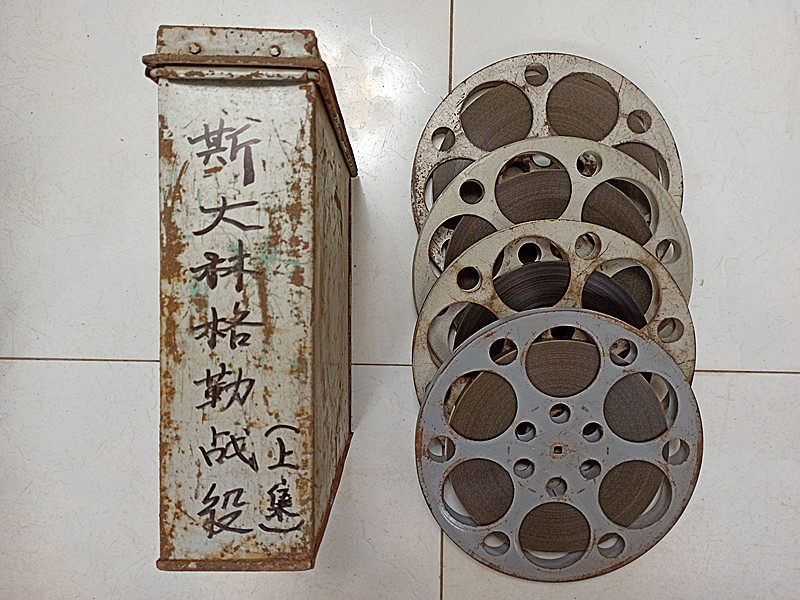 斯大林格勒战役
（上集）